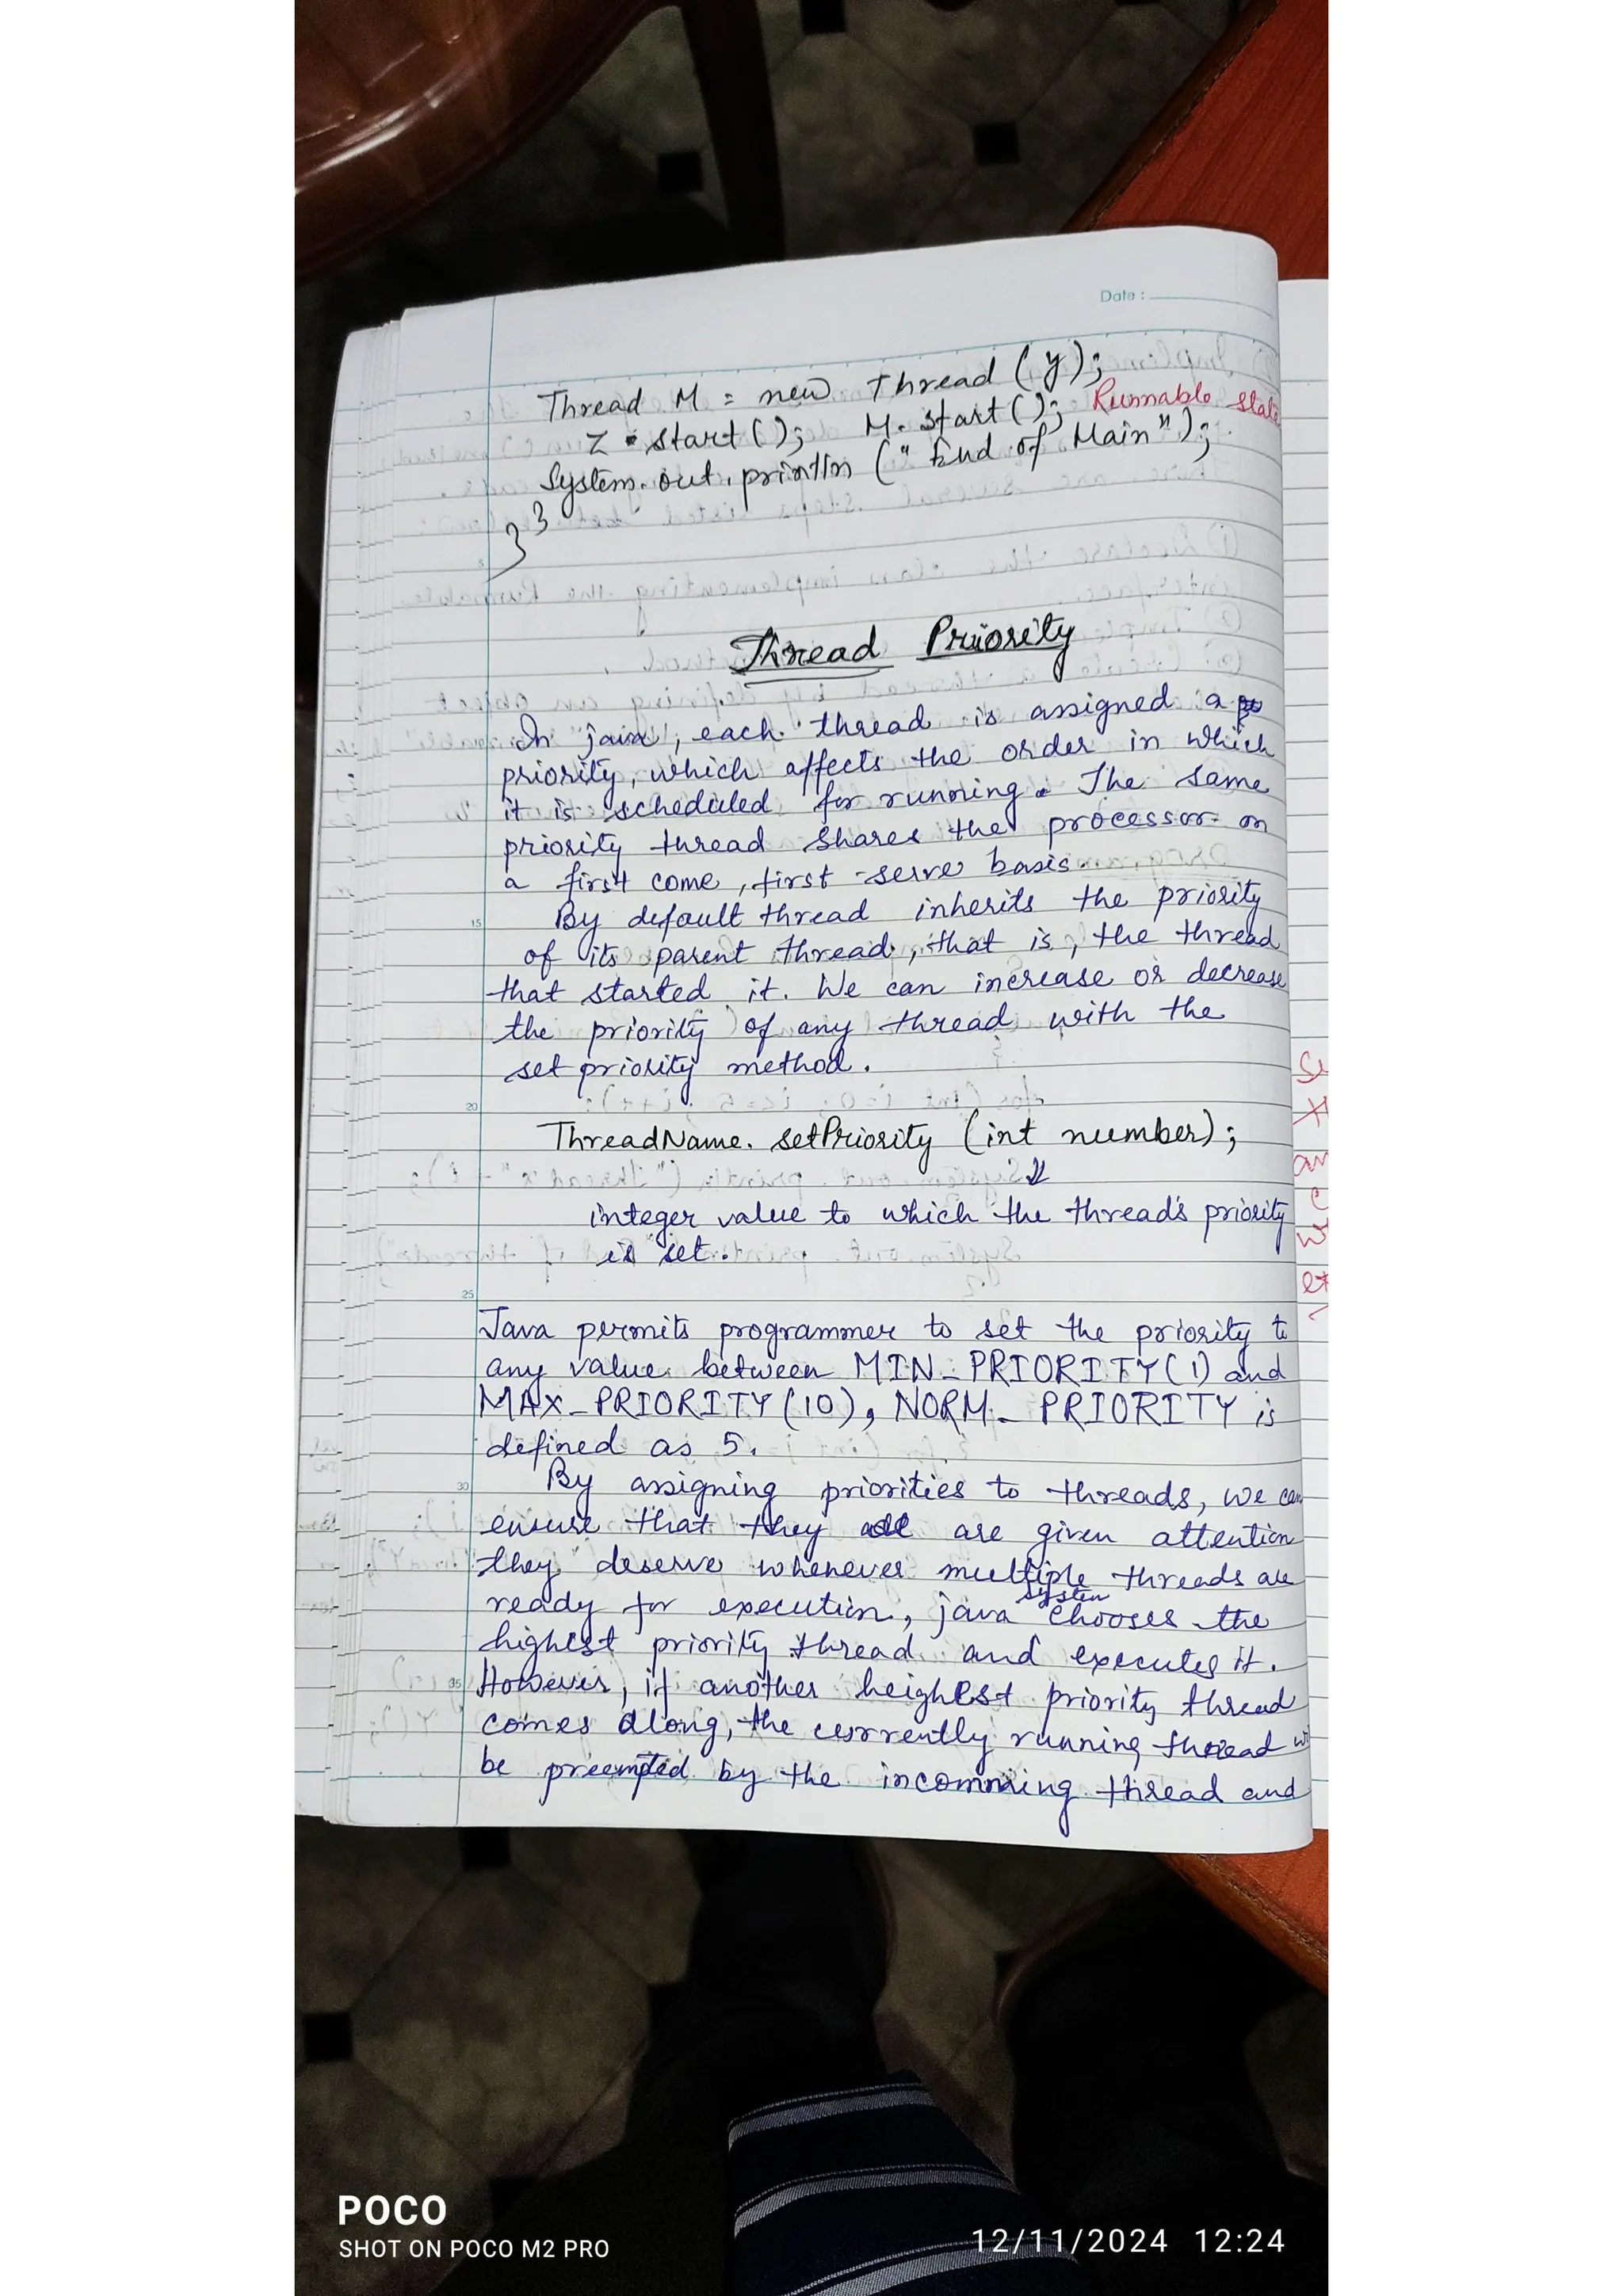 Date :
Thread M = new Thread (y);
Z . start ( ); M. start ( ); Runnable state
System. out. println (" End of Main" );
} }
Thread Priority
In java, each thread is assigned a
priority, which affects the order in which
it is scheduled for running. The same
priority thread shares the processor on
a first come, first -serve basis
15 By default thread inherits the priority
of its parent thread, that is, the thread
that started it. We can increase or decrease
the priority of any thread with the
set priority method.
20
ThreadName. setPriority (int number) ;
integer value to which the thread's priority
is set.
25
Java permits programmer to set the priority to
any value between MIN_PRIORITY(1) and
MAX_PRIORITY(10), NORM_ PRIORITY is
defined as 5.
30 By assigning priorities to threads, we can
ensure that they are given attention
they deserve whenever multiple threads are
ready for execution, java system chooses the
highest priority thread and executes it.
35 However, if another heighest priority thread
comes along, the currently running thread
be preempted by the incomming thread and
POCO
SHOT ON POCO M2 PRO
12/11/2024 12:24